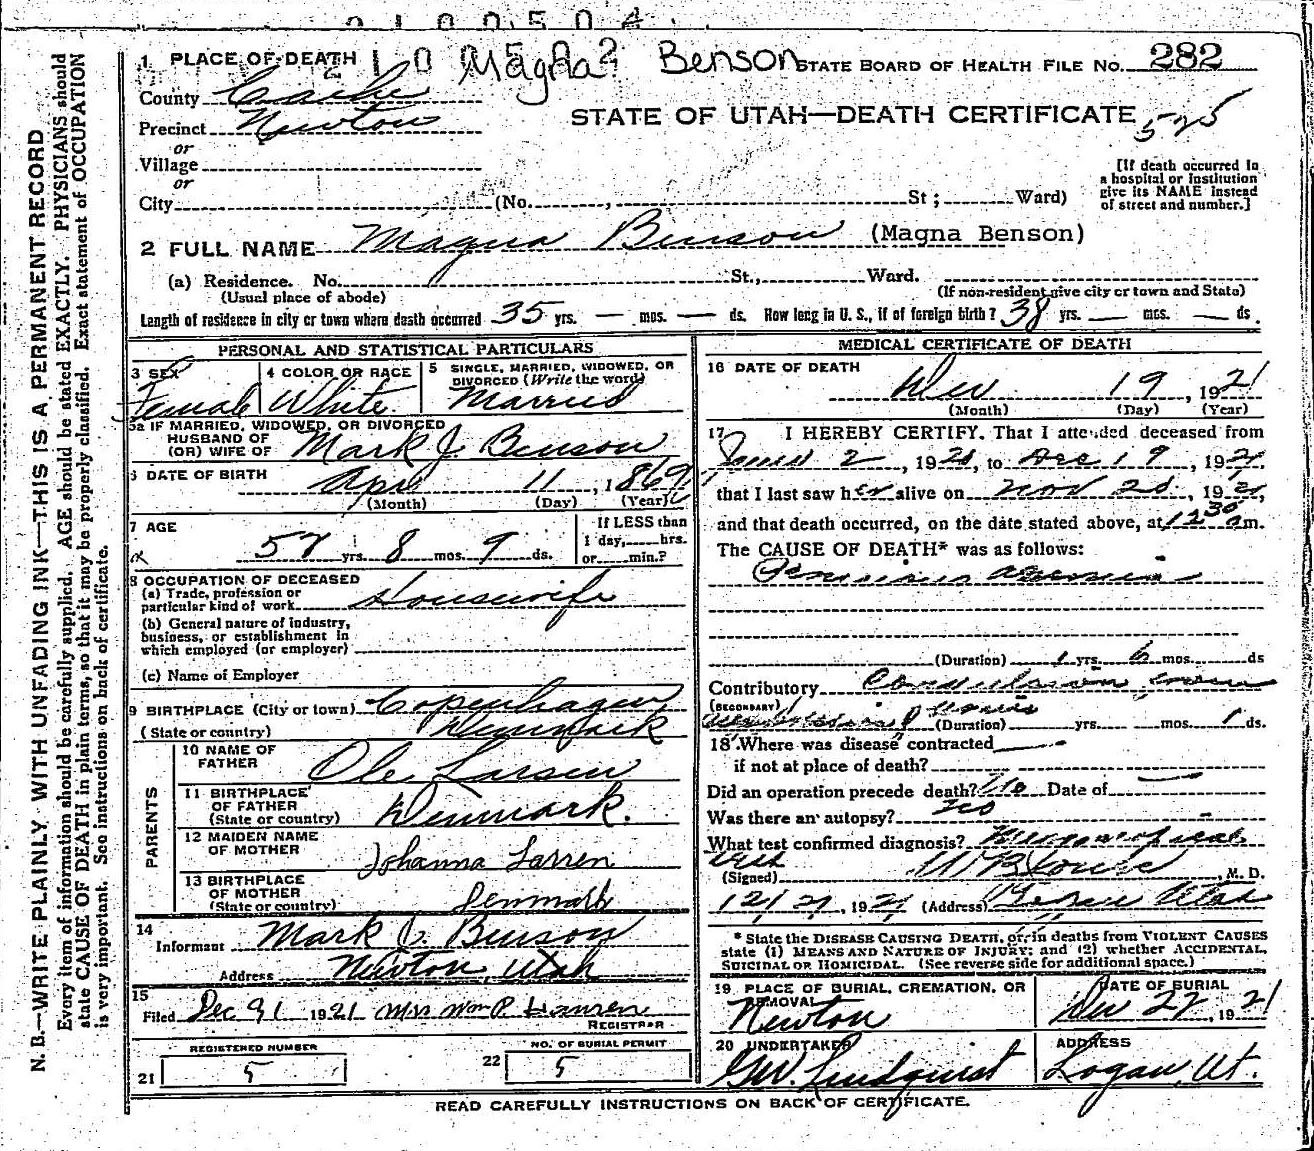 1 PLACE OF DEATH Magna? Benson STATE BOARD OF HEALTH FILE NO. 282
County Cache
STATE OF UTAH—DEATH CERTIFICATE 525
Precinct Newton
or
Village
or
City (No. , St; Ward)
[If death occurred in a hospital or Institution give its NAME instead of street and number.]
2 FULL NAME Magna Benson (Magna Benson)
(a) Residence. No. St., Ward.
(Usual place of abode) (If non-resident give city or town and State)
Length of residence in city or town where death occurred 35 yrs. — mos. — ds. How long in U. S., if of foreign birth? 38 yrs. — mos. — ds.
PERSONAL AND STATISTICAL PARTICULARS
3 SEX Female
4 COLOR OR RACE White
5 SINGLE, MARRIED, WIDOWED, OR DIVORCED (Write the word) Married
5a IF MARRIED, WIDOWED, OR DIVORCED
HUSBAND OF
(OR) WIFE OF Mark J. Benson
6 DATE OF BIRTH April 11, 1869
(Month) (Day) (Year)
7 AGE 52 yrs. 8 mos. 9 ds.
If LESS than 1 day, hrs. or min.?
8 OCCUPATION OF DECEASED
(a) Trade, profession or particular kind of work Housewife
(b) General nature of industry, business, or establishment in which employed (or employer)
(c) Name of Employer
9 BIRTHPLACE (City or town) Copenhagen
(State or country) Denmark
PARENTS
10 NAME OF FATHER Ole Larsen
11 BIRTHPLACE OF FATHER (State or country) Denmark.
12 MAIDEN NAME OF MOTHER Johanna Larsen
13 BIRTHPLACE OF MOTHER (State or country) Denmark
14 Informant Mark J. Benson
Address Newton, Utah
15 Filed Dec 21 1921 Mrs Wm P. Hansen
REGISTRAR
REGISTERED NUMBER
21 5
NO. OF BURIAL PERMIT
22 5
MEDICAL CERTIFICATE OF DEATH
16 DATE OF DEATH
Dec 19, 1921
(Month) (Day) (Year)
17 I HEREBY CERTIFY, That I attended deceased from
June 2, 1921, to Dec 19, 1921,
that I last saw her alive on Nov 20, 1921,
and that death occurred, on the date stated above, at 12 30 am.
The CAUSE OF DEATH* was as follows:
Pernicious Anemia
(Duration) 1 yrs 6 mos. ds
Contributory
(SECONDARY)
(Duration) yrs. mos. 1 ds.
18 Where was disease contracted
if not at place of death?
Did an operation precede death? No Date of
Was there an autopsy? No
What test confirmed diagnosis? Microscopical
test
(Signed) , M. D.
12/21, 1921 (Address) Utah
* State the DISEASE CAUSING DEATH, or, in deaths from VIOLENT CAUSES
state (1) MEANS AND NATURE OF INJURY; and (2) whether ACCIDENTAL,
SUICIDAL or HOMICIDAL. (See reverse side for additional space.)
19 PLACE OF BURIAL, CREMATION, OR REMOVAL Newton
DATE OF BURIAL Dec 22, 1921
20 UNDERTAKER G.W. Lindquist
ADDRESS Logan, Ut.
READ CAREFULLY INSTRUCTIONS ON BACK OF CERTIFICATE.
N. B.—WRITE PLAINLY, WITH UNFADING INK—THIS IS A PERMANENT RECORD
Every item of information should be carefully supplied. AGE should be stated EXACTLY. PHYSICIANS should
state CAUSE OF DEATH in plain terms, so that it may be properly classified. Exact statement of OCCUPATION
is very important. See instructions on back of certificate.